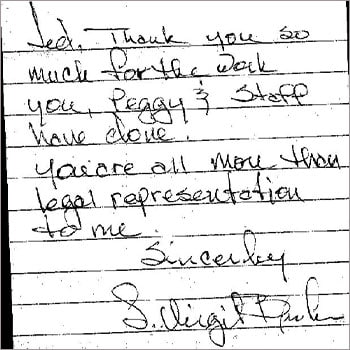 Jed, Thank you so
much for the work
you, Peggy & Staff
have done.
You are all more than
legal representation
to me.
Sincerley
S. Virgil